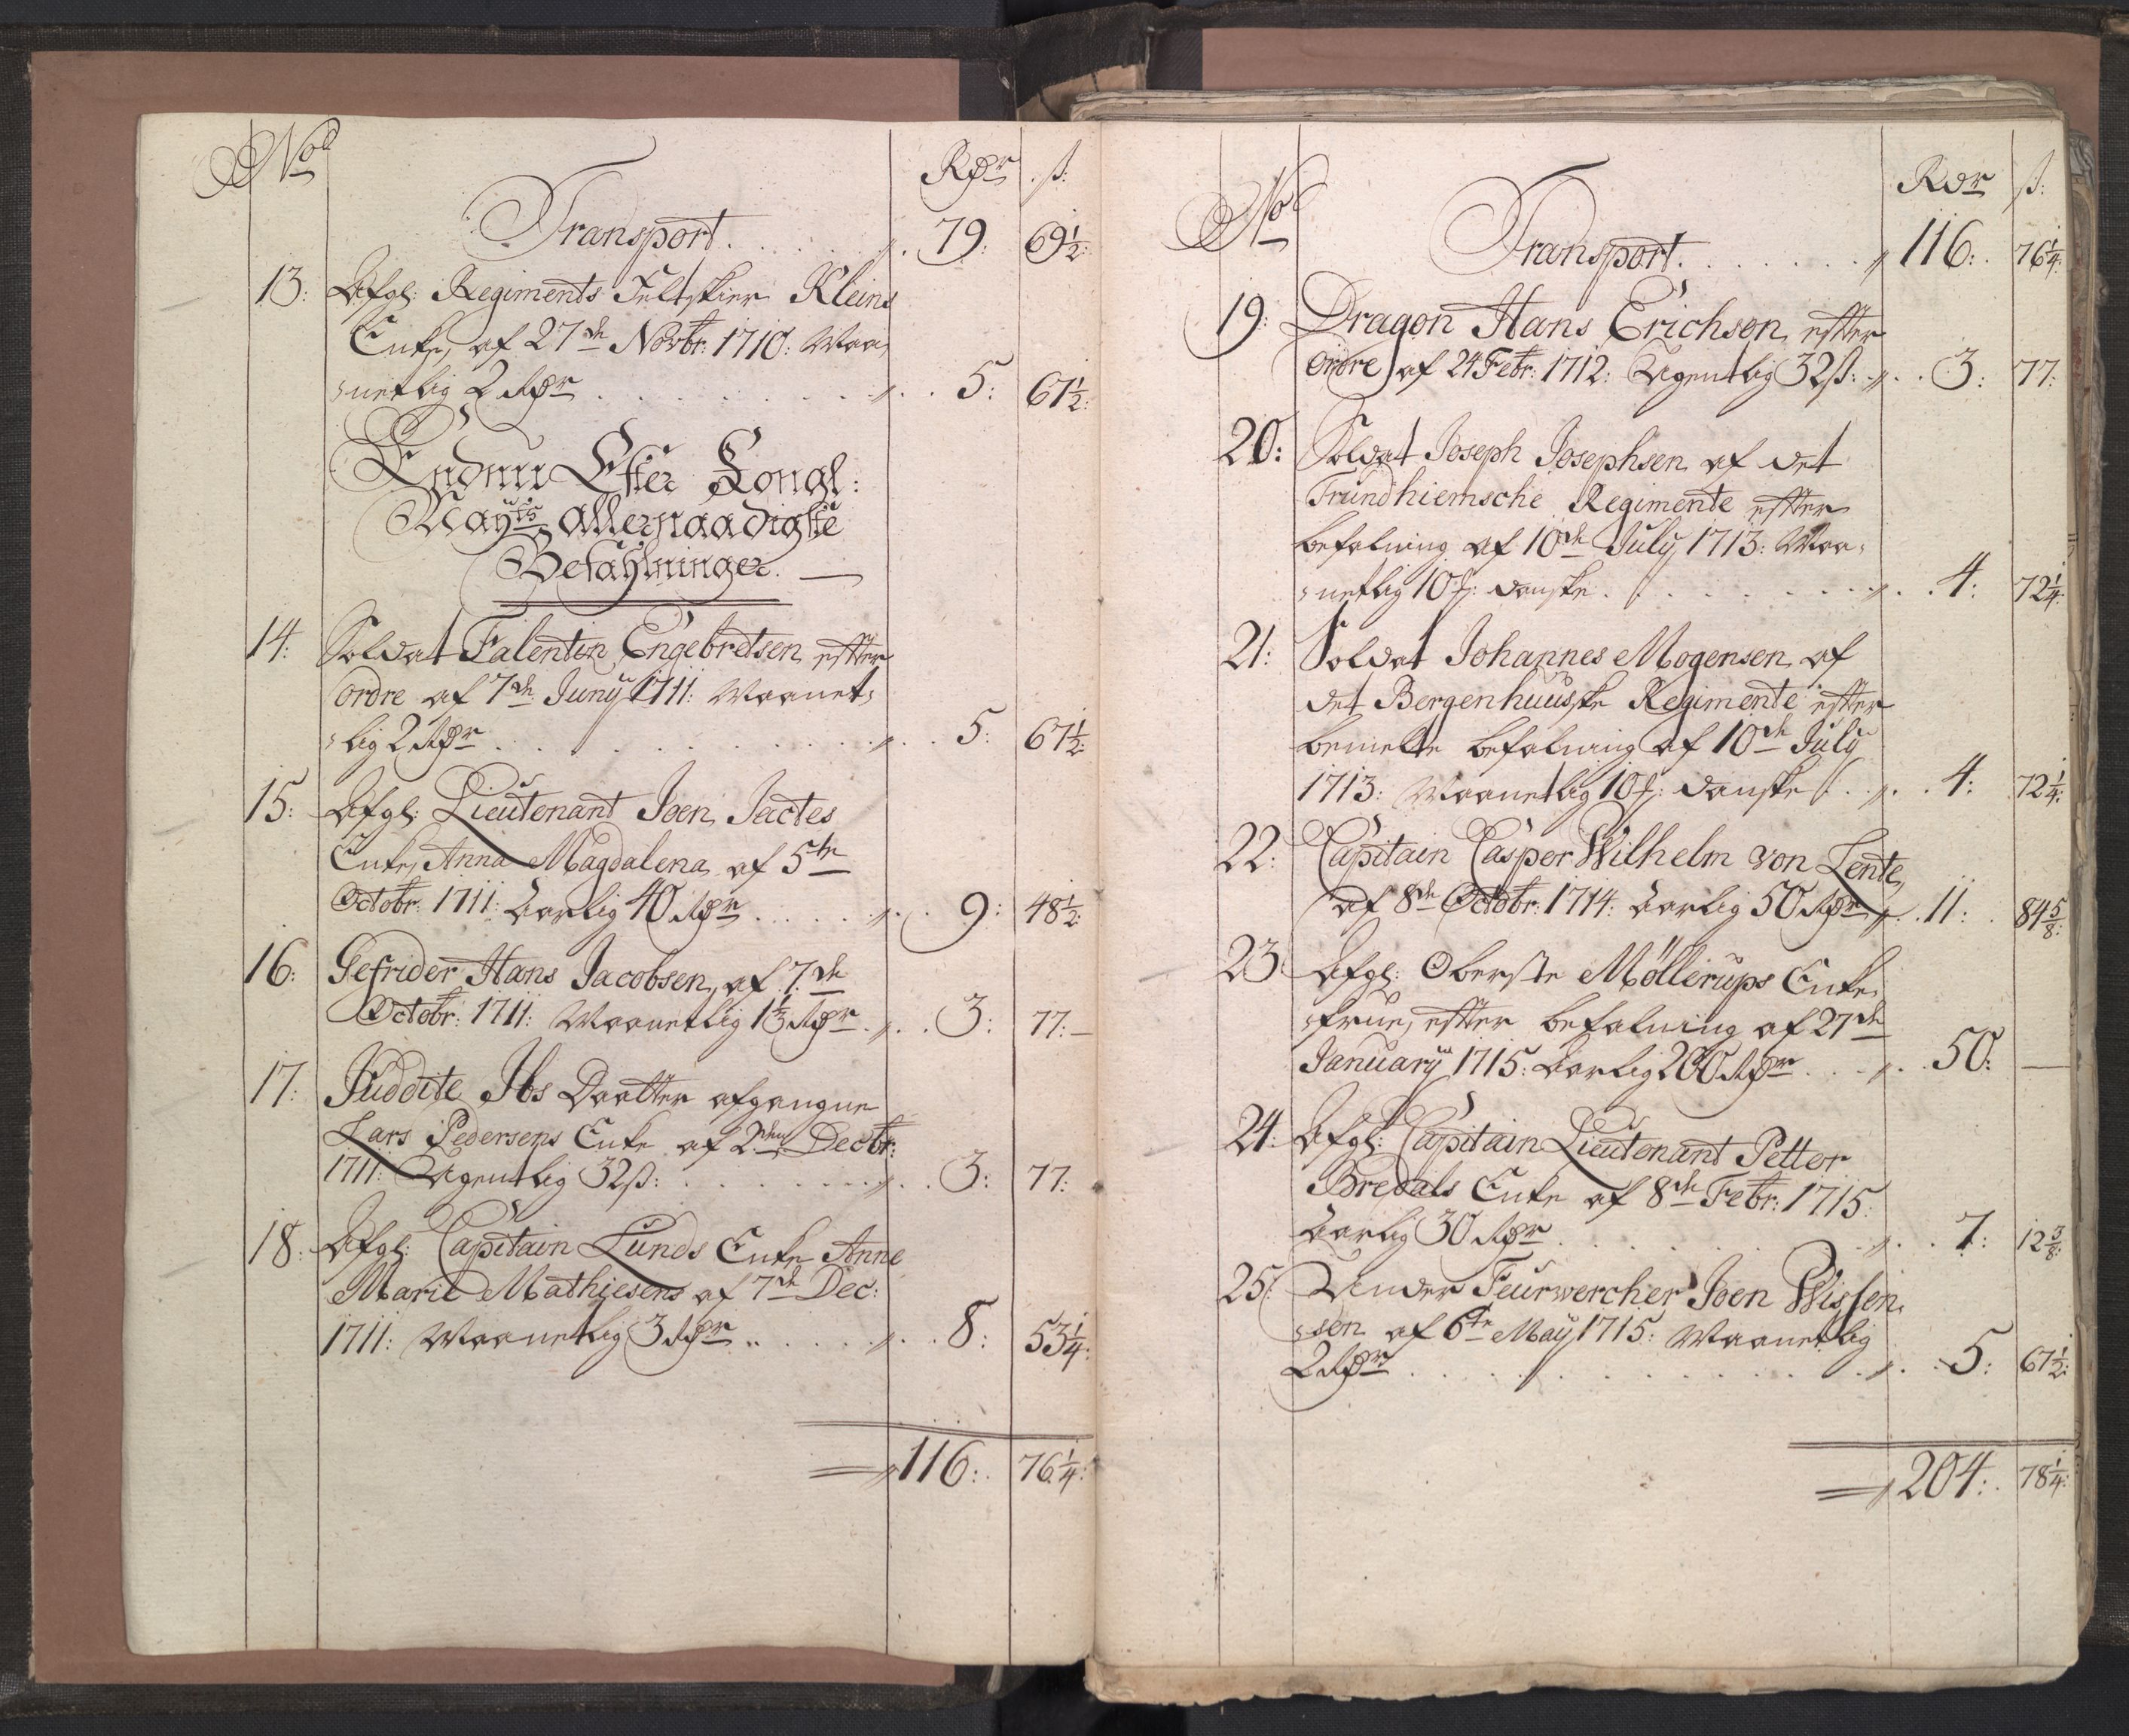 No Rdr ß:
Transport . . . . . 79: 69½:
13: Afgl: Regiments Feltskier Kleins
Enke, af 27de Novbr: 1710: Maa-
-netlig 2 Rdr . . . . . 5: 67½:
Endnu Efter Kongl:
Mayts Allernaadigste
Befahlninger. —
14: Soldat Falentin Engebretsen efter
ordre af 7de Juny 1711: Maanet-
-lig 2 Rdr . . . . . 5: 67½:
15: Afgl: Lieutenant Joen Jactes
Enke, Anna Magdalena, af 5te
Octobr: 1711: Aarlig 40 Rdr . . . . . 9: 48½:
16: Gefrider Hans Jacobsen, af 7de
Octobr: 1711: Maanetlig 1⅓ Rdr . . . 3: 77: —
17: Juddite Ibs Daatter afgangne
Lars Pedersens Enke af 2den Decbr:
1711: Ugentlig 32 ß: . . . . . 3: 77:
18: Afgl: Capitain Lunds Enke Anne
Marie Mathiesens af 7de Dec:
1711: Maanetlig 3 Rdr . . . . . 8: 53¼:
116: 76¼:
No Rdr ß:
Transport . . . . . 116: 76¼:
19: Dragon Hans Erichson, efter
ordre af 24 Febr: 1712: Ugentlig 32 ß: . . 3: 77:
20: Soldat Joseph Josephsen af det
Trundhiemsche Regimente efter
befalning af 10de July 1713: Maa-
-netlig 10 ʄ: danske . . . . . 4: 72¼:
21: Soldat Johannes Mogensen, af
det Bergenhuuske Regimente efter
bemelte befalning af 10de July
1713: Maanetlig 10 ʄ: danske . . . 4: 72¼:
22: Capitain Casper Wilhelm von Lente,
af 8de Octobr: 1714: Aarlig 50 Rdr . . 11: 84⅝:
23: Afgl: Oberste Møllerups Enke-
-frue, efter befalning af 27de
January 1715: Aarlig 200 Rdr . . . 50: —
24: Afgl: Capitain Lieutenant Petter
Bredals Enke af 8de Febr: 1715:
Aarlig 30 Rdr . . . . . 7: 12⅜:
25: Under Feurwercher Joen Wissen-
-sen af 6te May 1715: Maanetlig
2 Rdr . . . . . 5: 67½:
204: 78¼: